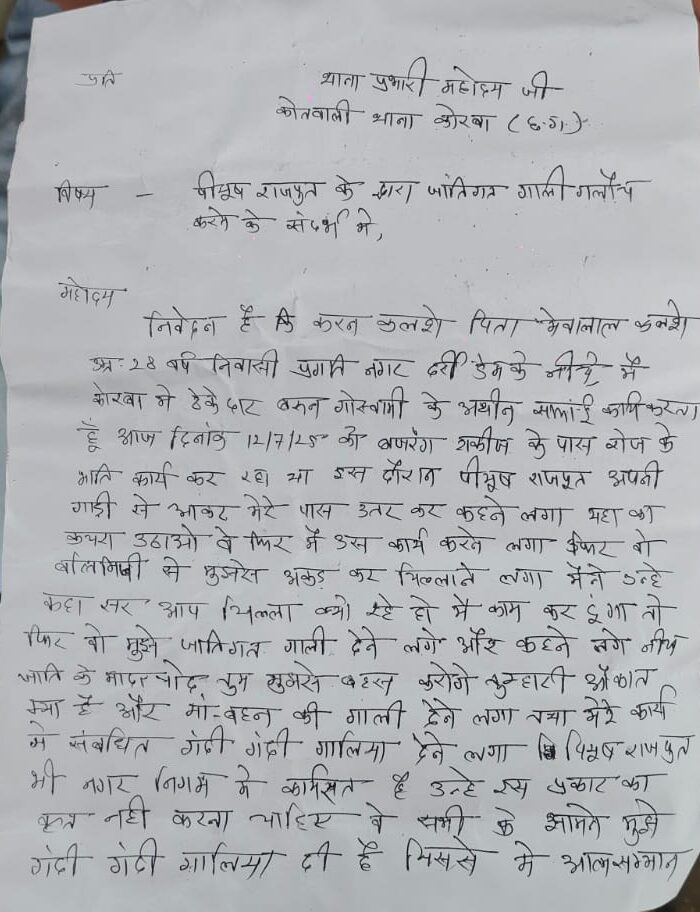 प्रति
थाना प्रभारी महोदय जी
कोतवाली थाना कोरबा (छ.ग.)
विषय - पीयूष राजपुत के द्वारा जातिगत गाली गलौच
करने के संदर्भ मे,
महोदय
निवेदन है कि करन कलशे पिता मेवालाल कलशे
उम्र: 28 वर्ष निवासी प्रगति नगर दर्री डेम के नीचे मै
कोरबा मे ठेकेदार वरुन गोस्वामी के अधीन सफाई कार्य करता
हूँ आज दिनांक 12/7/25 को बजरंग टाकीज के पास रोज के
भाति कार्य कर रहा था इस दौरान पीयूष राजपुत अपनी
गाड़ी से आकर मेरे पास उतर कर कहने लगा यहा का
कचरा उठाओ वे फिर मै उस कार्य करने लगा फिर वो
मुझसे अकड़ कर चिल्लाने लगा मैंने उन्हे
कहा सर आप चिल्ला क्यो रहे हो मै काम कर दुंगा तो
फिर वो मुझे जातिगत गाली देने लगे और कहने लगे नीच
जाति के मादरचोद तुम मुझसे बहस करोगे तुम्हारी औकात
क्या है और मां-बहन की गाली देने लगा तथा मेरे कार्य
से संबधित गंदी गंदी गालिया देने लगा पियूष राजपुत
भी नगर निगम मे कार्यरत है उन्हे इस प्रकार का
कृत नही करना चाहिए वे सभी के सामने मुझे
गंदी गंदी गालिया दी है जिससे मे आत्मसम्मान